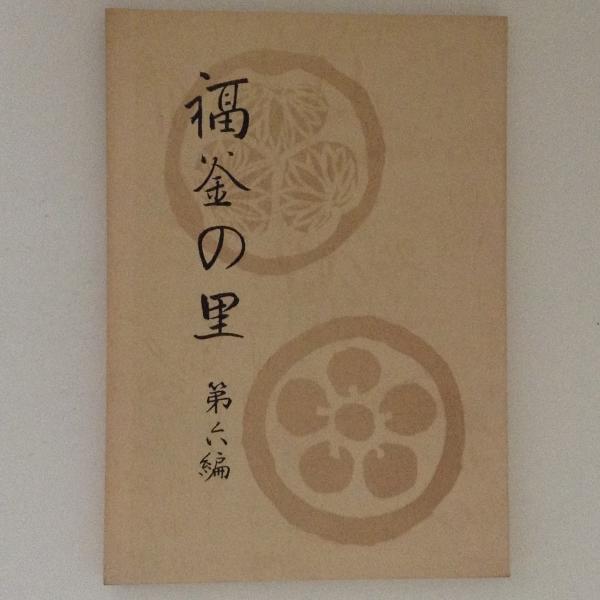 福釜の里
第六編